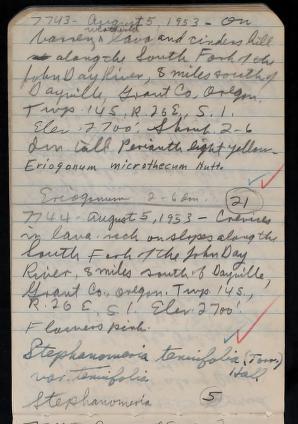 7743 - August 5, 1953 - On
barren weathered lava and cinders hill
along the South Fork of the
John Day River, 8 miles south of
Dayville, Grant Co. Oregon.
Twp. 14S, R. 26E, S. 1.
Elev. 2700'. Shrub 2-6
dm tall. Perianth light yellow.
Eriogonum microthecum Nutt.
Eriogonum 2-6 dm. 21
7744 - August 5, 1953 - Crevices
in lava rock on slopes along the
South Fork of the John Day
River, 8 miles south of Dayville,
Grant Co. Oregon. Twp. 14S.,
R. 26 E, S. 1. Elev. 2700'
Flowers pink.
Stephanomeria tenuifolia (Torr.) Hall
var. tenuifolia
Stephanomeria 5